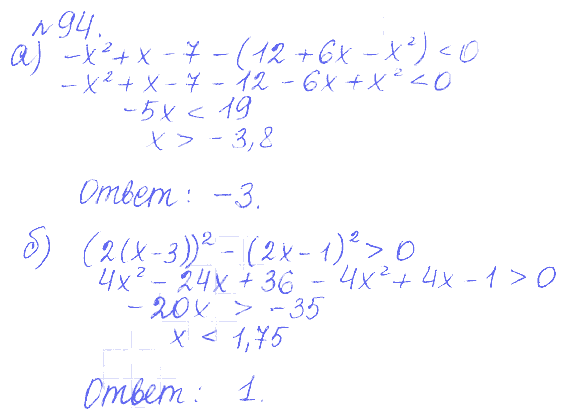 №94.
а) -x² + x - 7 - (12 + 6x - x²) < 0
-x² + x - 7 - 12 - 6x + x² < 0
-5x < 19
x > -3,8
Ответ: -3.
б) (2(x-3))² - (2x-1)² > 0
4x² - 24x + 36 - 4x² + 4x - 1 > 0
-20x > -35
x < 1,75
Ответ: 1.